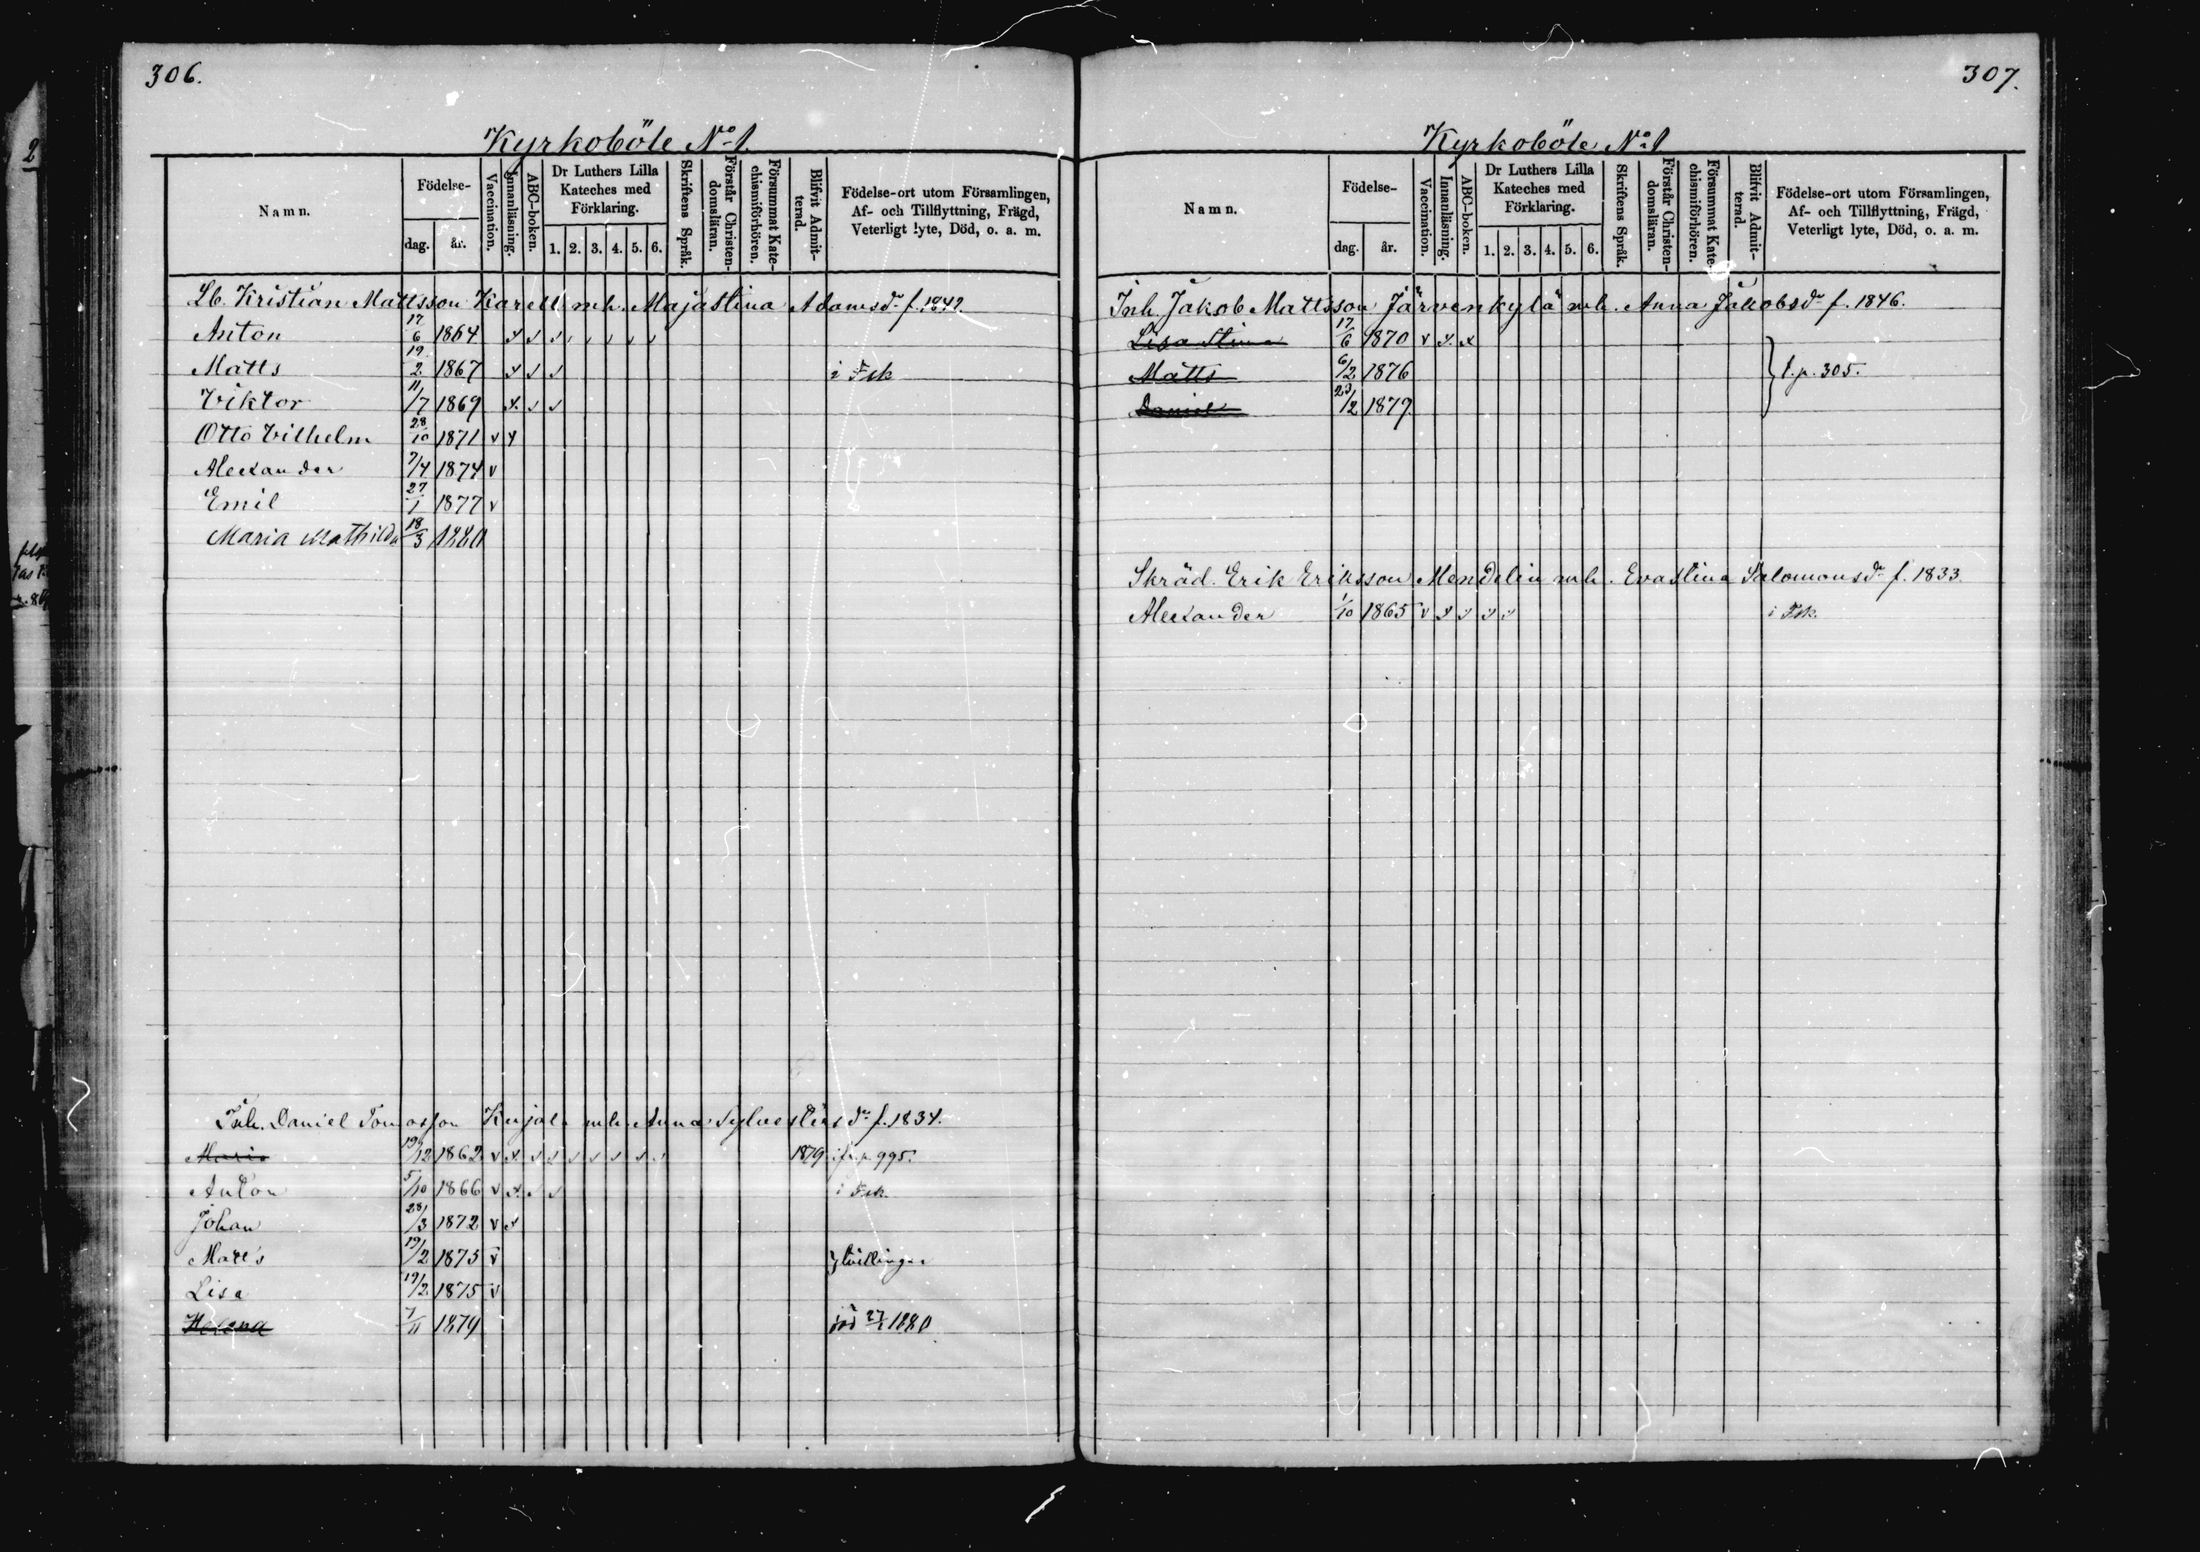 306.
Kyrkoböle No 1.
Namn.
Födelse-
dag. år.
Vaccination.
Innanläsning.
ABC-boken.
Dr Luthers Lilla Kateches med Förklaring.
1. 2. 3. 4. 5. 6.
Skriftens Språk.
Förstår Christendomsläran.
Försummat Katechismiförhören.
Blifvit Admitterad.
Födelse-ort utom Församlingen,
Af- och Tillflyttning, Frägd,
Veterligt lyte, Död, o. a. m.
Lb. Kristian Mattsson Karell mh. Majastina Adamsdr f. 1842.
Anton 17/6 1864
Matts 19/2 1867 i Fsk
Viktor 11/7 1869
Otto Vilhelm 28/10 1871 v
Alexander 7/4 1874 v
Emil 27/1 1877 v
Maria Mathilda 18/3 1880
Inh. Daniel Tomasson Kujala mh. Anna Sylvestersdr f. 1834.
Maria 19/12 1862 v 1879 p 995.
Anton 5/10 1866 v i Fsk.
Johan 28/3 1872 v
Matts 19/2 1875 v } tvillingar
Lisa 19/2 1875 v
Helena 7/11 1879 död 27/1 1880
307.
Kyrkoböle No 1
Namn.
Födelse-
dag. år.
Vaccination.
Innanläsning.
ABC-boken.
Dr Luthers Lilla
Kateches med
Förklaring.
1. 2. 3. 4. 5. 6.
Skriftens Språk.
Förstår Christendomsläran.
Försummat Katechismiförhören.
Blifvit Admitterad.
Födelse-ort utom Församlingen,
Af- och Tillflyttning, Frägd,
Veterligt lyte, Död, o. a. m.
Inh. Jakob Mattsson Järvenkylä mh. Anna Jakobsdr f. 1846.
Lisa Stina 17/6 1870 v
Matts 6/2 1876 } f. p. 305.
Daniel 23/12 1879.
Skräd. Erik Eriksson Mendelin mh. Evastina Salomonsdr f. 1833.
Alexander 1/10 1865 v i Fsk.